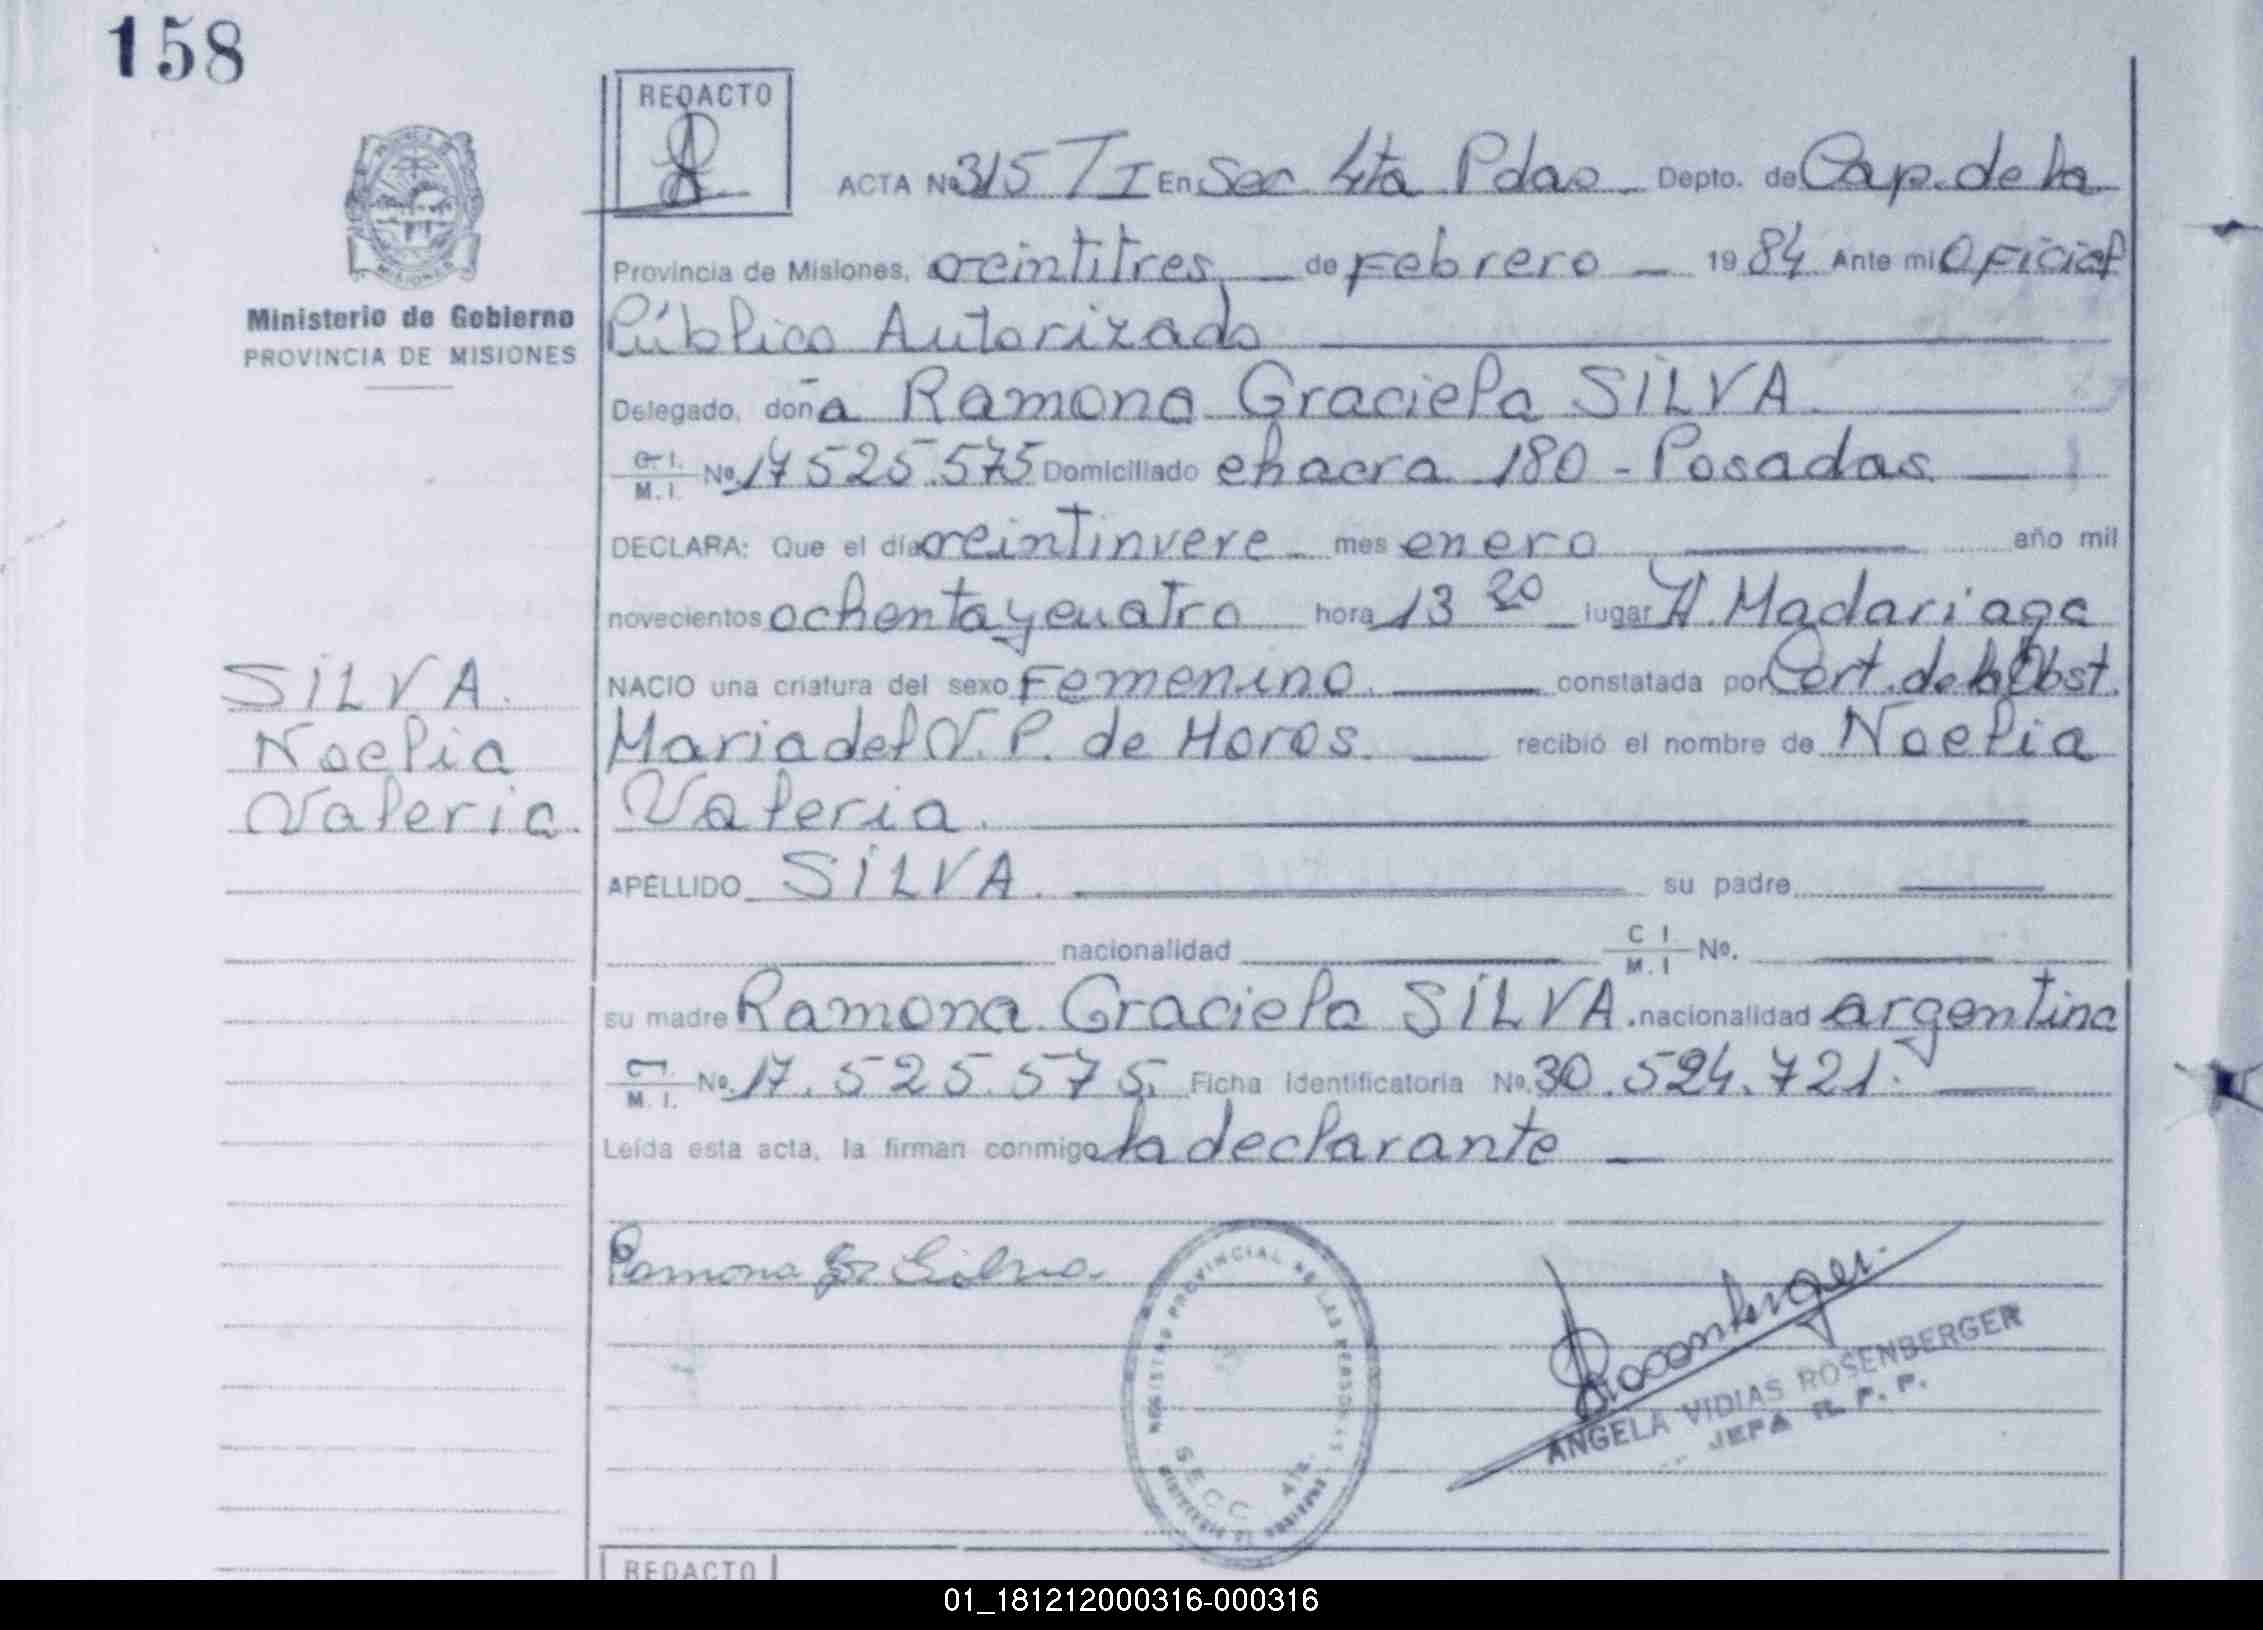 158
REDACTO
ACTA Nº 315 T I En Sec 4ta Pdas Depto. de Cap. de la
Provincia de Misiones, veintitres de Febrero 1984 Ante mi Oficial
Ministerio de Gobierno
PROVINCIA DE MISIONES
Público Autorizado
Delegado, doña Ramona Graciela SILVA
C. I. M. I. Nº 17525.575 Domiciliado chacra 180 - Posadas
DECLARA: Que el día veintinueve mes enero año mil
novecientos ochenta y cuatro hora 13 20 lugar H. Madariaga
SILVA.
Noelia
Valeria.
NACIO una criatura del sexo Femenino. constatada por Cert. de la Obst.
Maria del V. P. de Horos. recibió el nombre de Noelia
Valeria.
APELLIDO SILVA. su padre
nacionalidad C I M. I Nº.
su madre Ramona Graciela SILVA. nacionalidad argentina
M. I. Nº. 17.525.575. Ficha Identificatoria Nº. 30.524.721.
Leída esta acta, la firman conmigo la declarante
Ramona G. Silva
REGISTRO PROVINCIAL DE LAS PERSONAS
SECC 4ta.
Rosenberger
ANGELA VIDIAS ROSENBERGER
JEFA R. P. P.
REDACTO
01_181212000316-000316